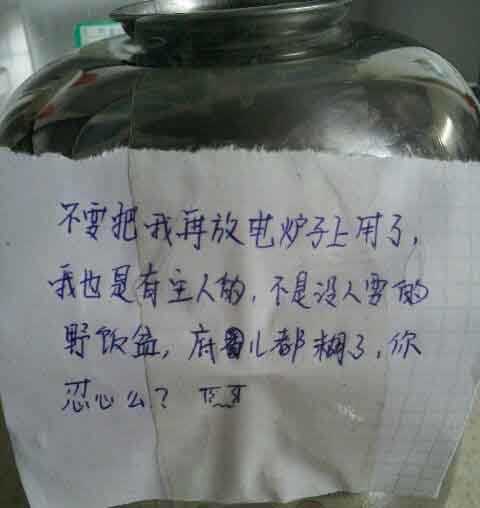 不要把我再放电炉子上用了,
我也是有主人的,不是没人要的
野饮盆,府儿都糊了,你
忍心么?